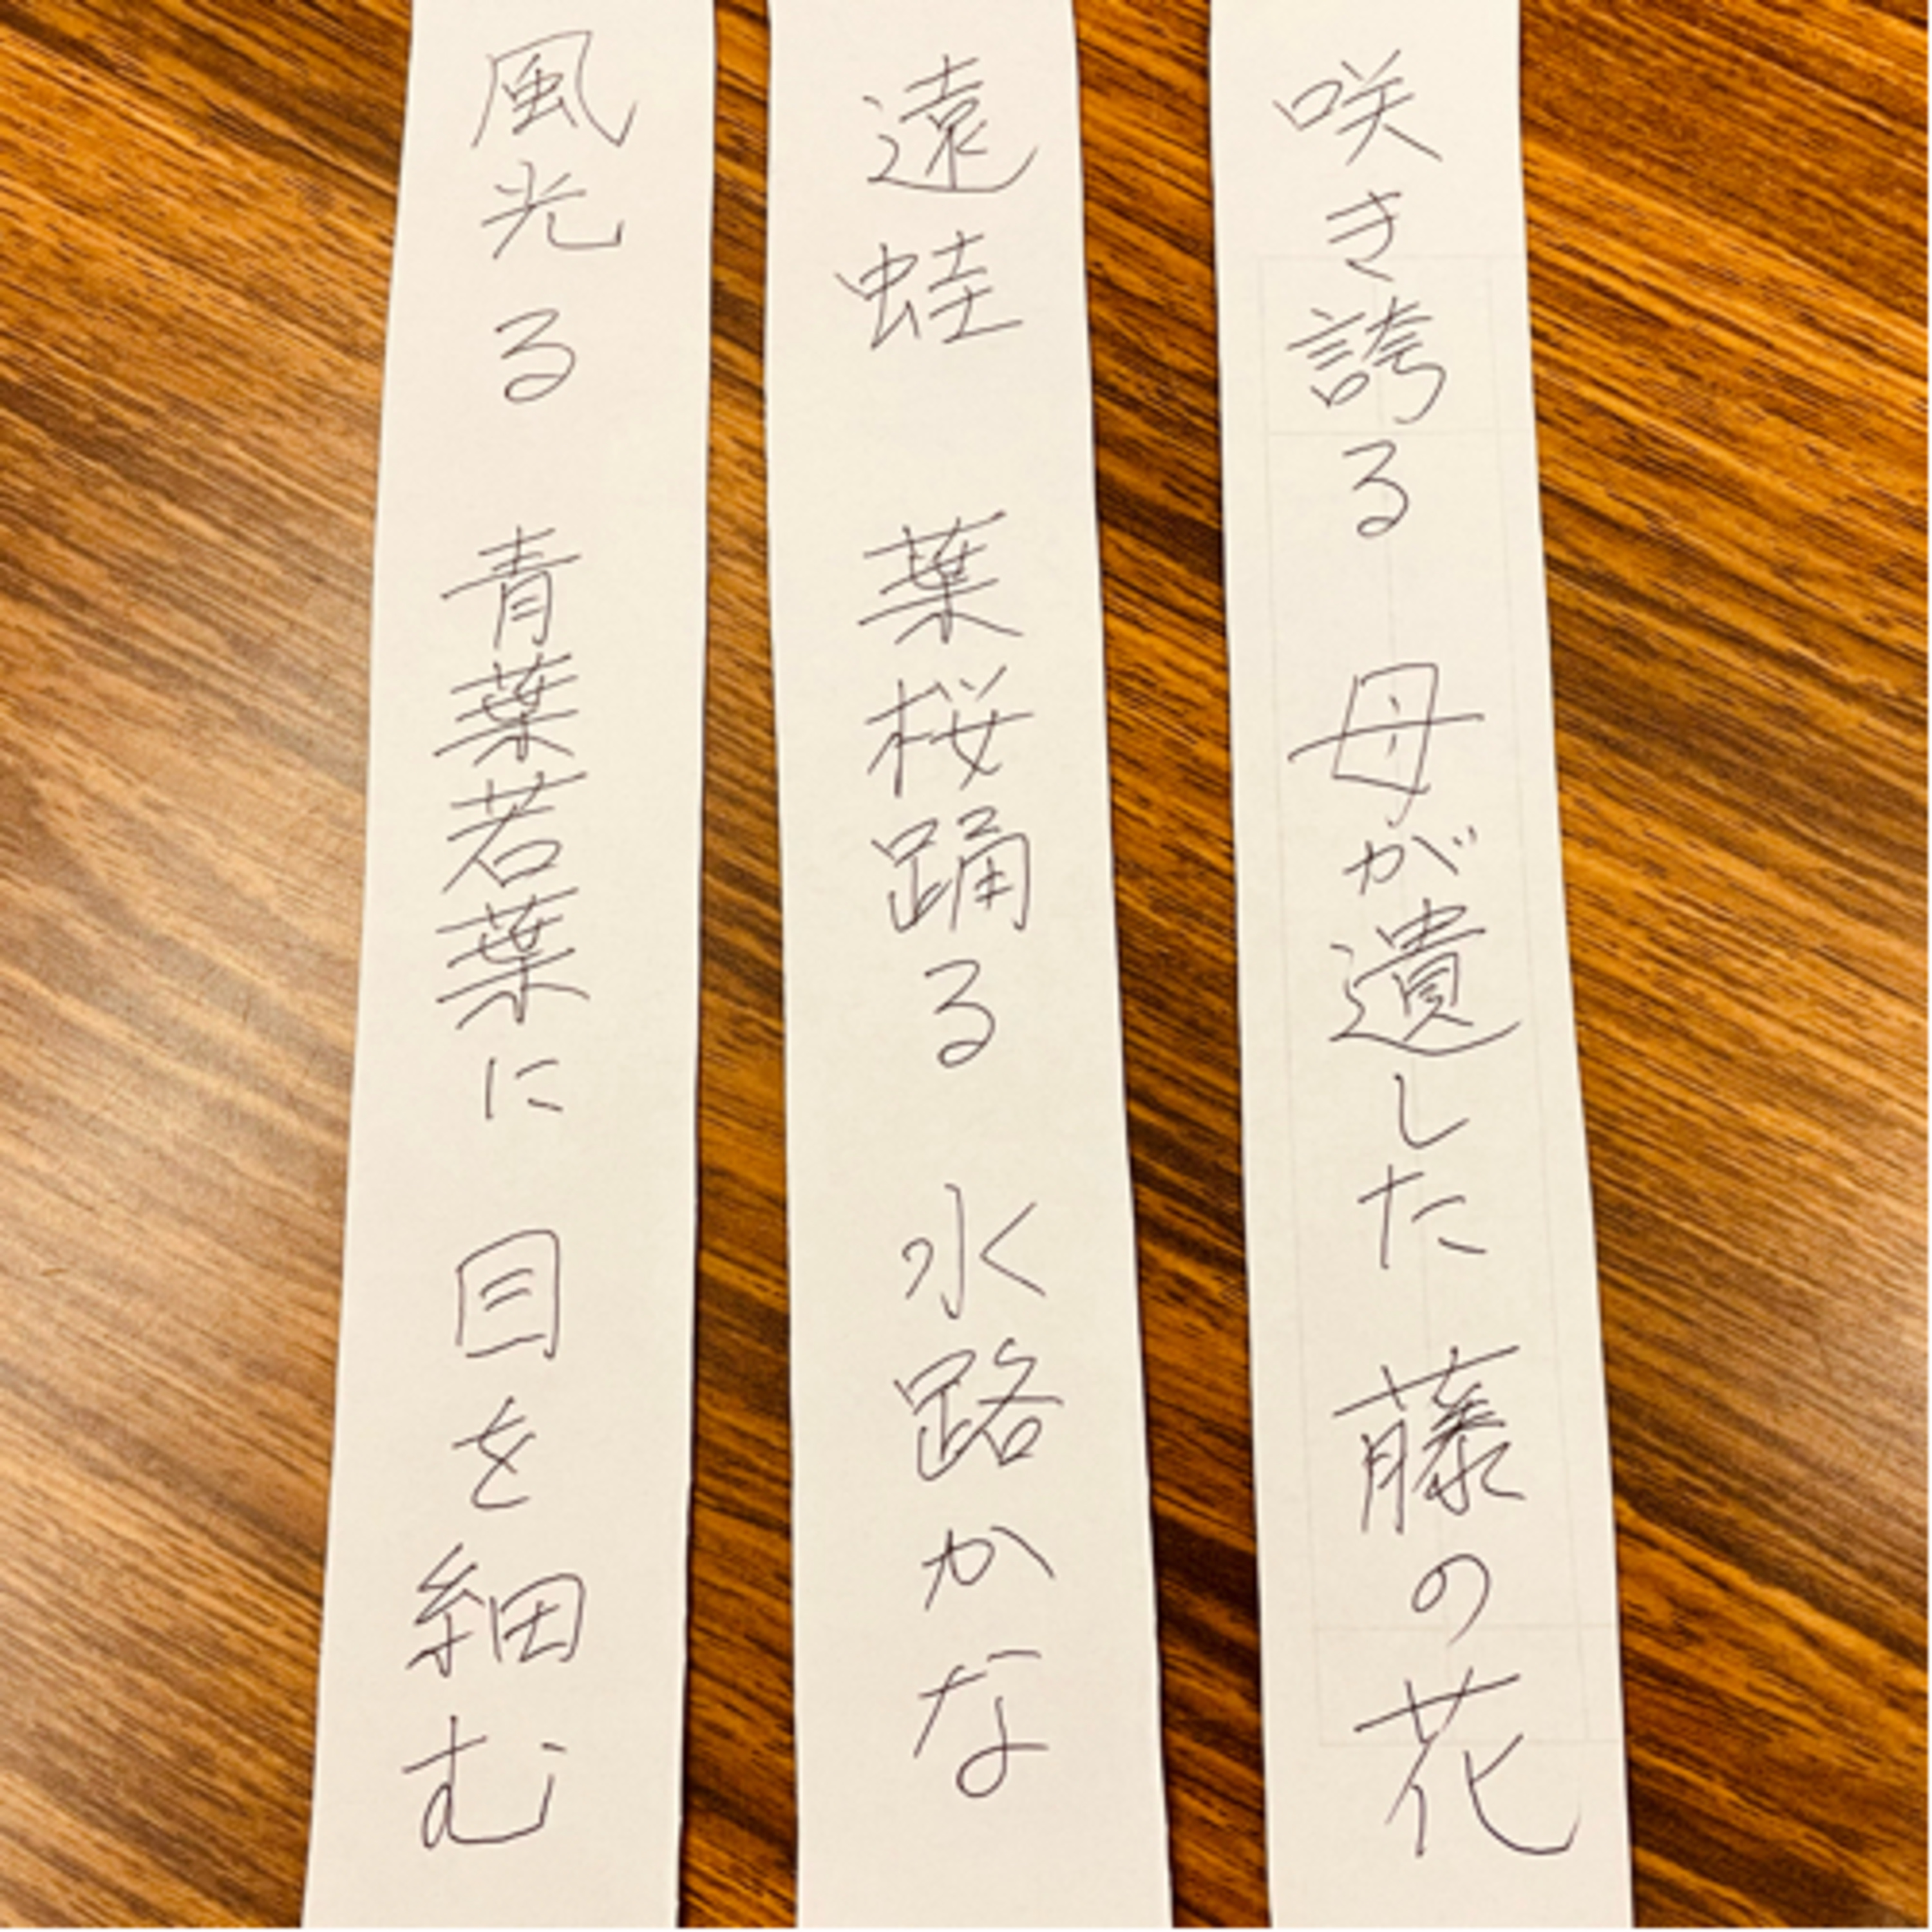 咲き誇る 母が遺した 藤の花
遠蛙 葉桜踊る 水路かな
風光る 青葉若葉に 目を細む